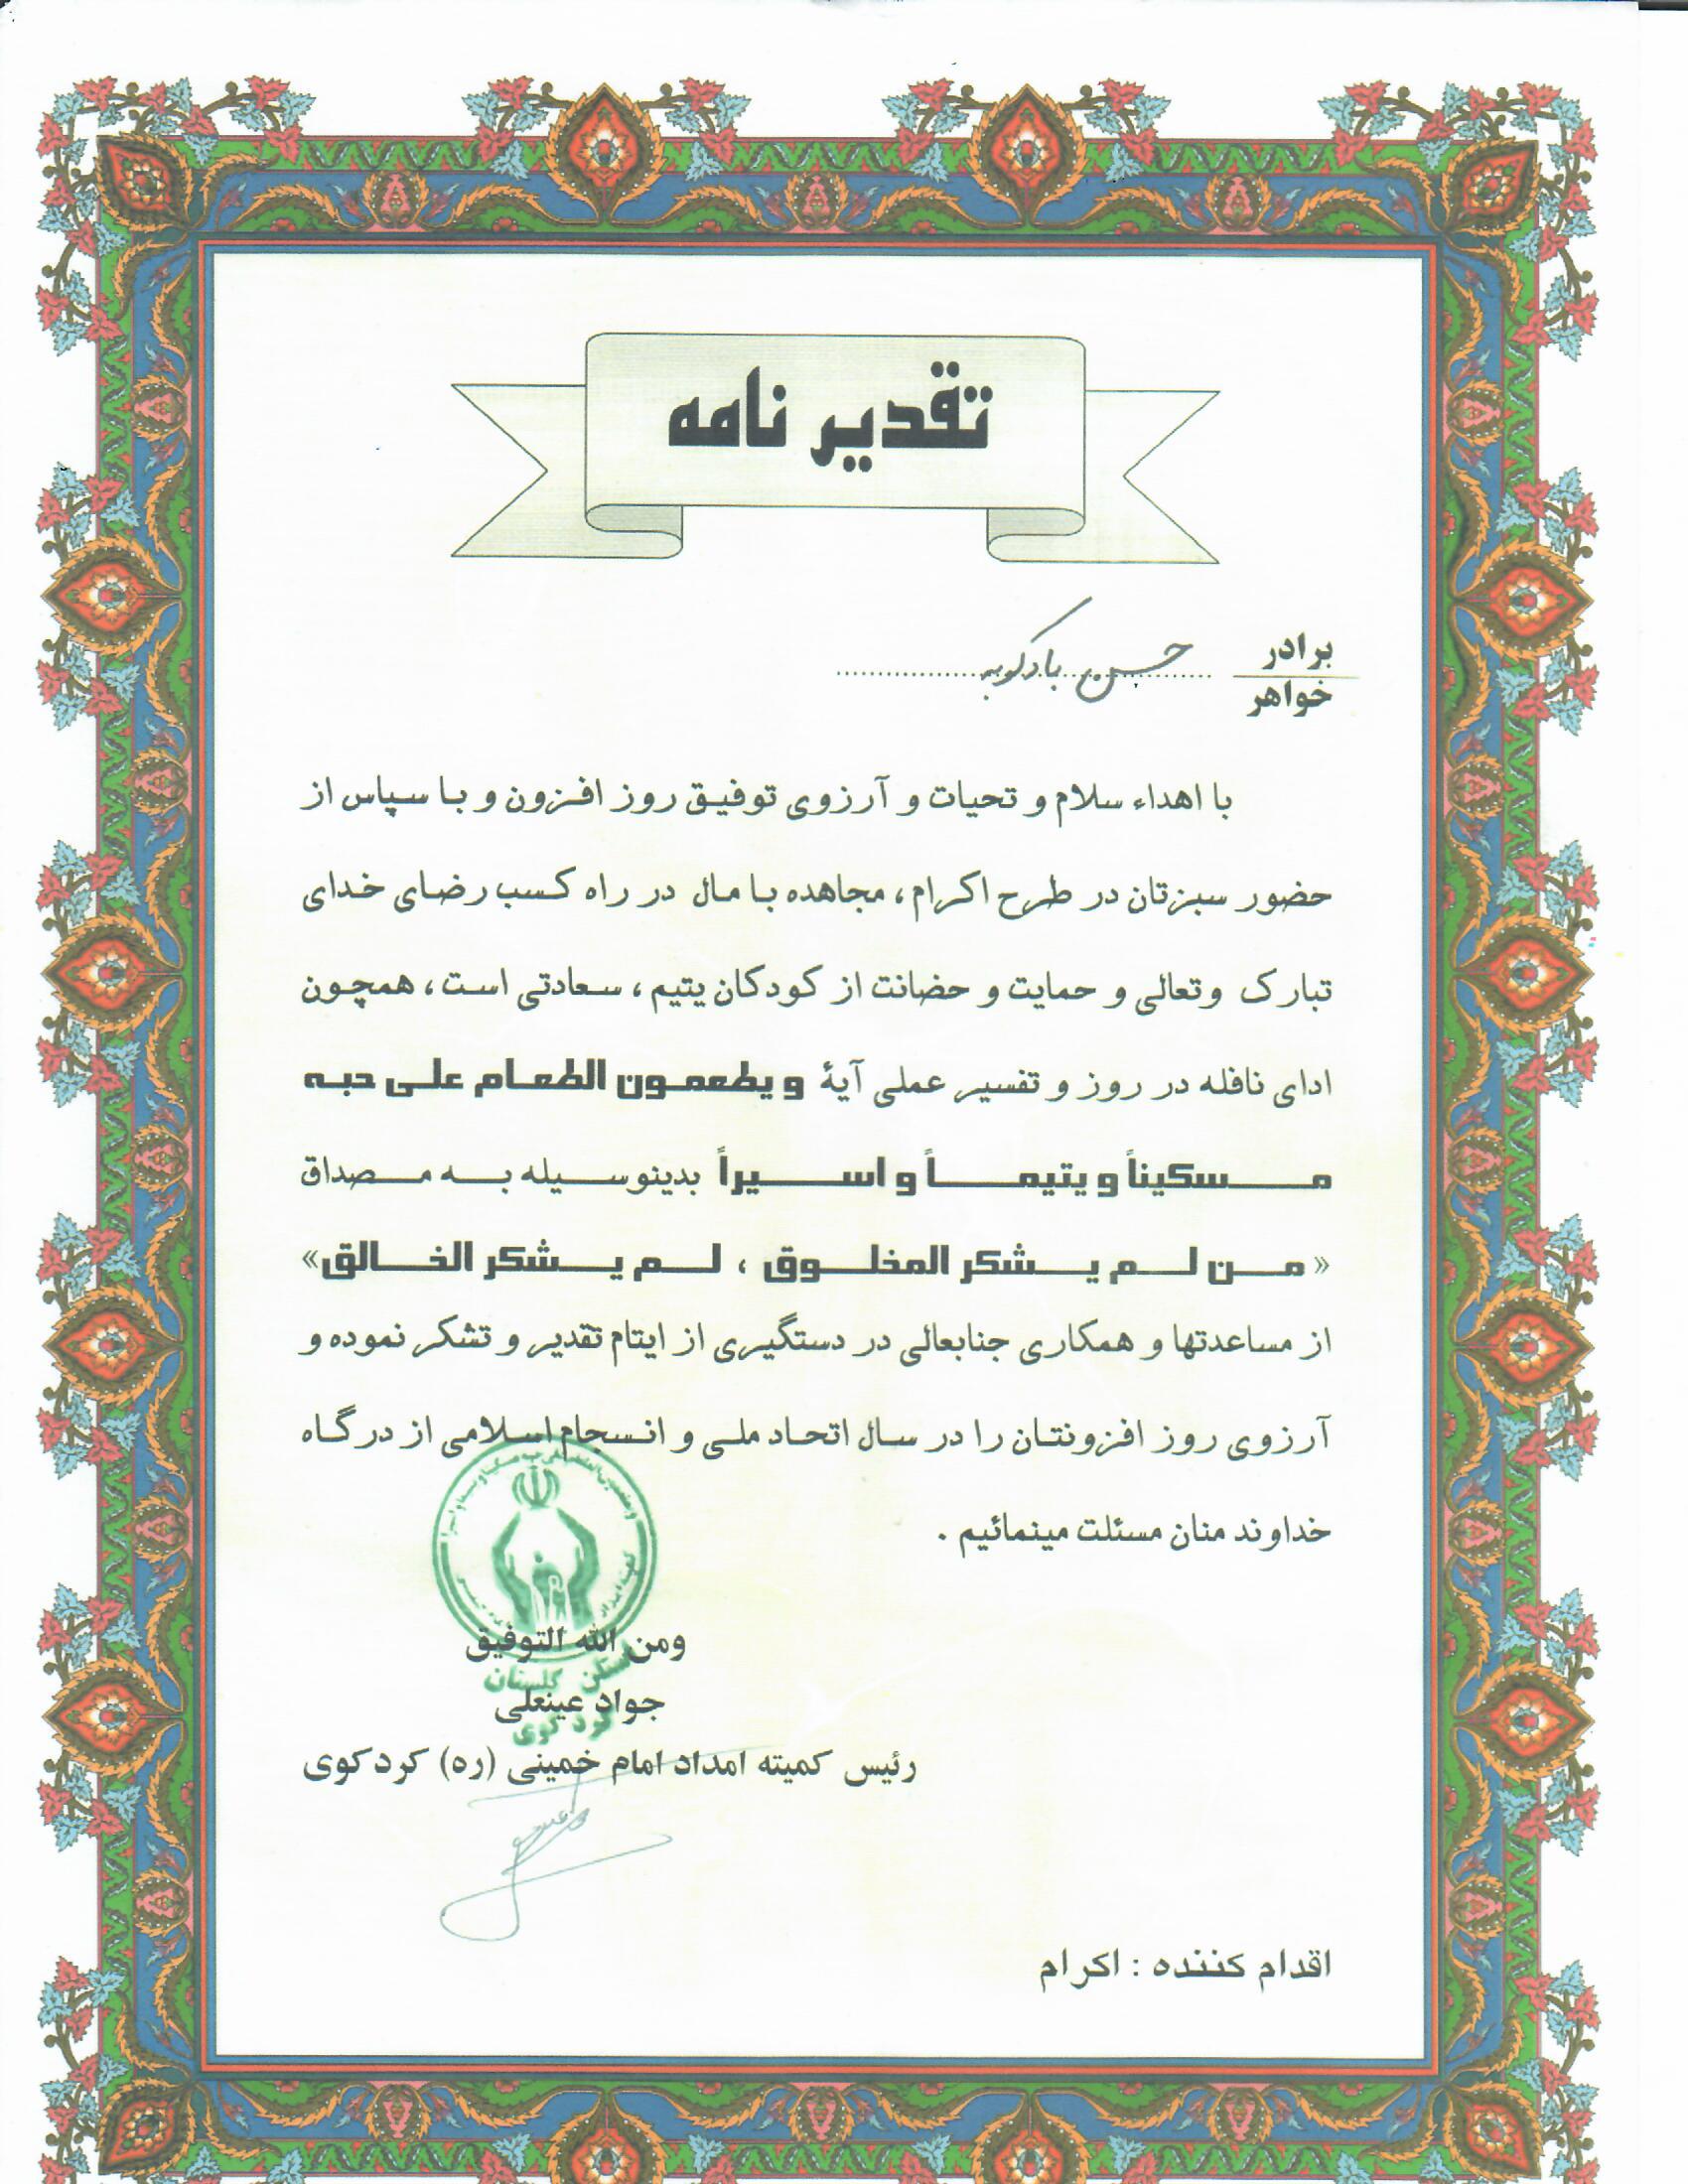 تقدیر نامه
برادر
خواهر
حسن بادکوبه
با اهداء سلام و تحیات و آرزوی توفیق روز افزون و با سپاس از
حضور سبزتان در طرح اکرام، مجاهده با مال در راه کسب رضای خدای
تبارک وتعالی و حمایت و حضانت از کودکان یتیم، سعادتی است، همچون
ادای نافله در روز و تفسیر عملی آیهٔ و یطعمون الطعام علی حبه
مسکیناً و یتیماً و اسیراً بدینوسیله به مصداق
«من لم یشکر المخلوق، لم یشکر الخالق»
از مساعدتها و همکاری جنابعالی در دستگیری از ایتام تقدیر و تشکر نموده و
آرزوی روز افزونتان را در سال اتحاد ملی و انسجام اسلامی از درگاه
خداوند منان مسئلت مینمائیم.
ومن الله التوفیق
گلستان
جواد عینعلی
کردکوی
رئیس کمیته امداد امام خمینی (ره) کردکوی
اقدام کننده : اکرام